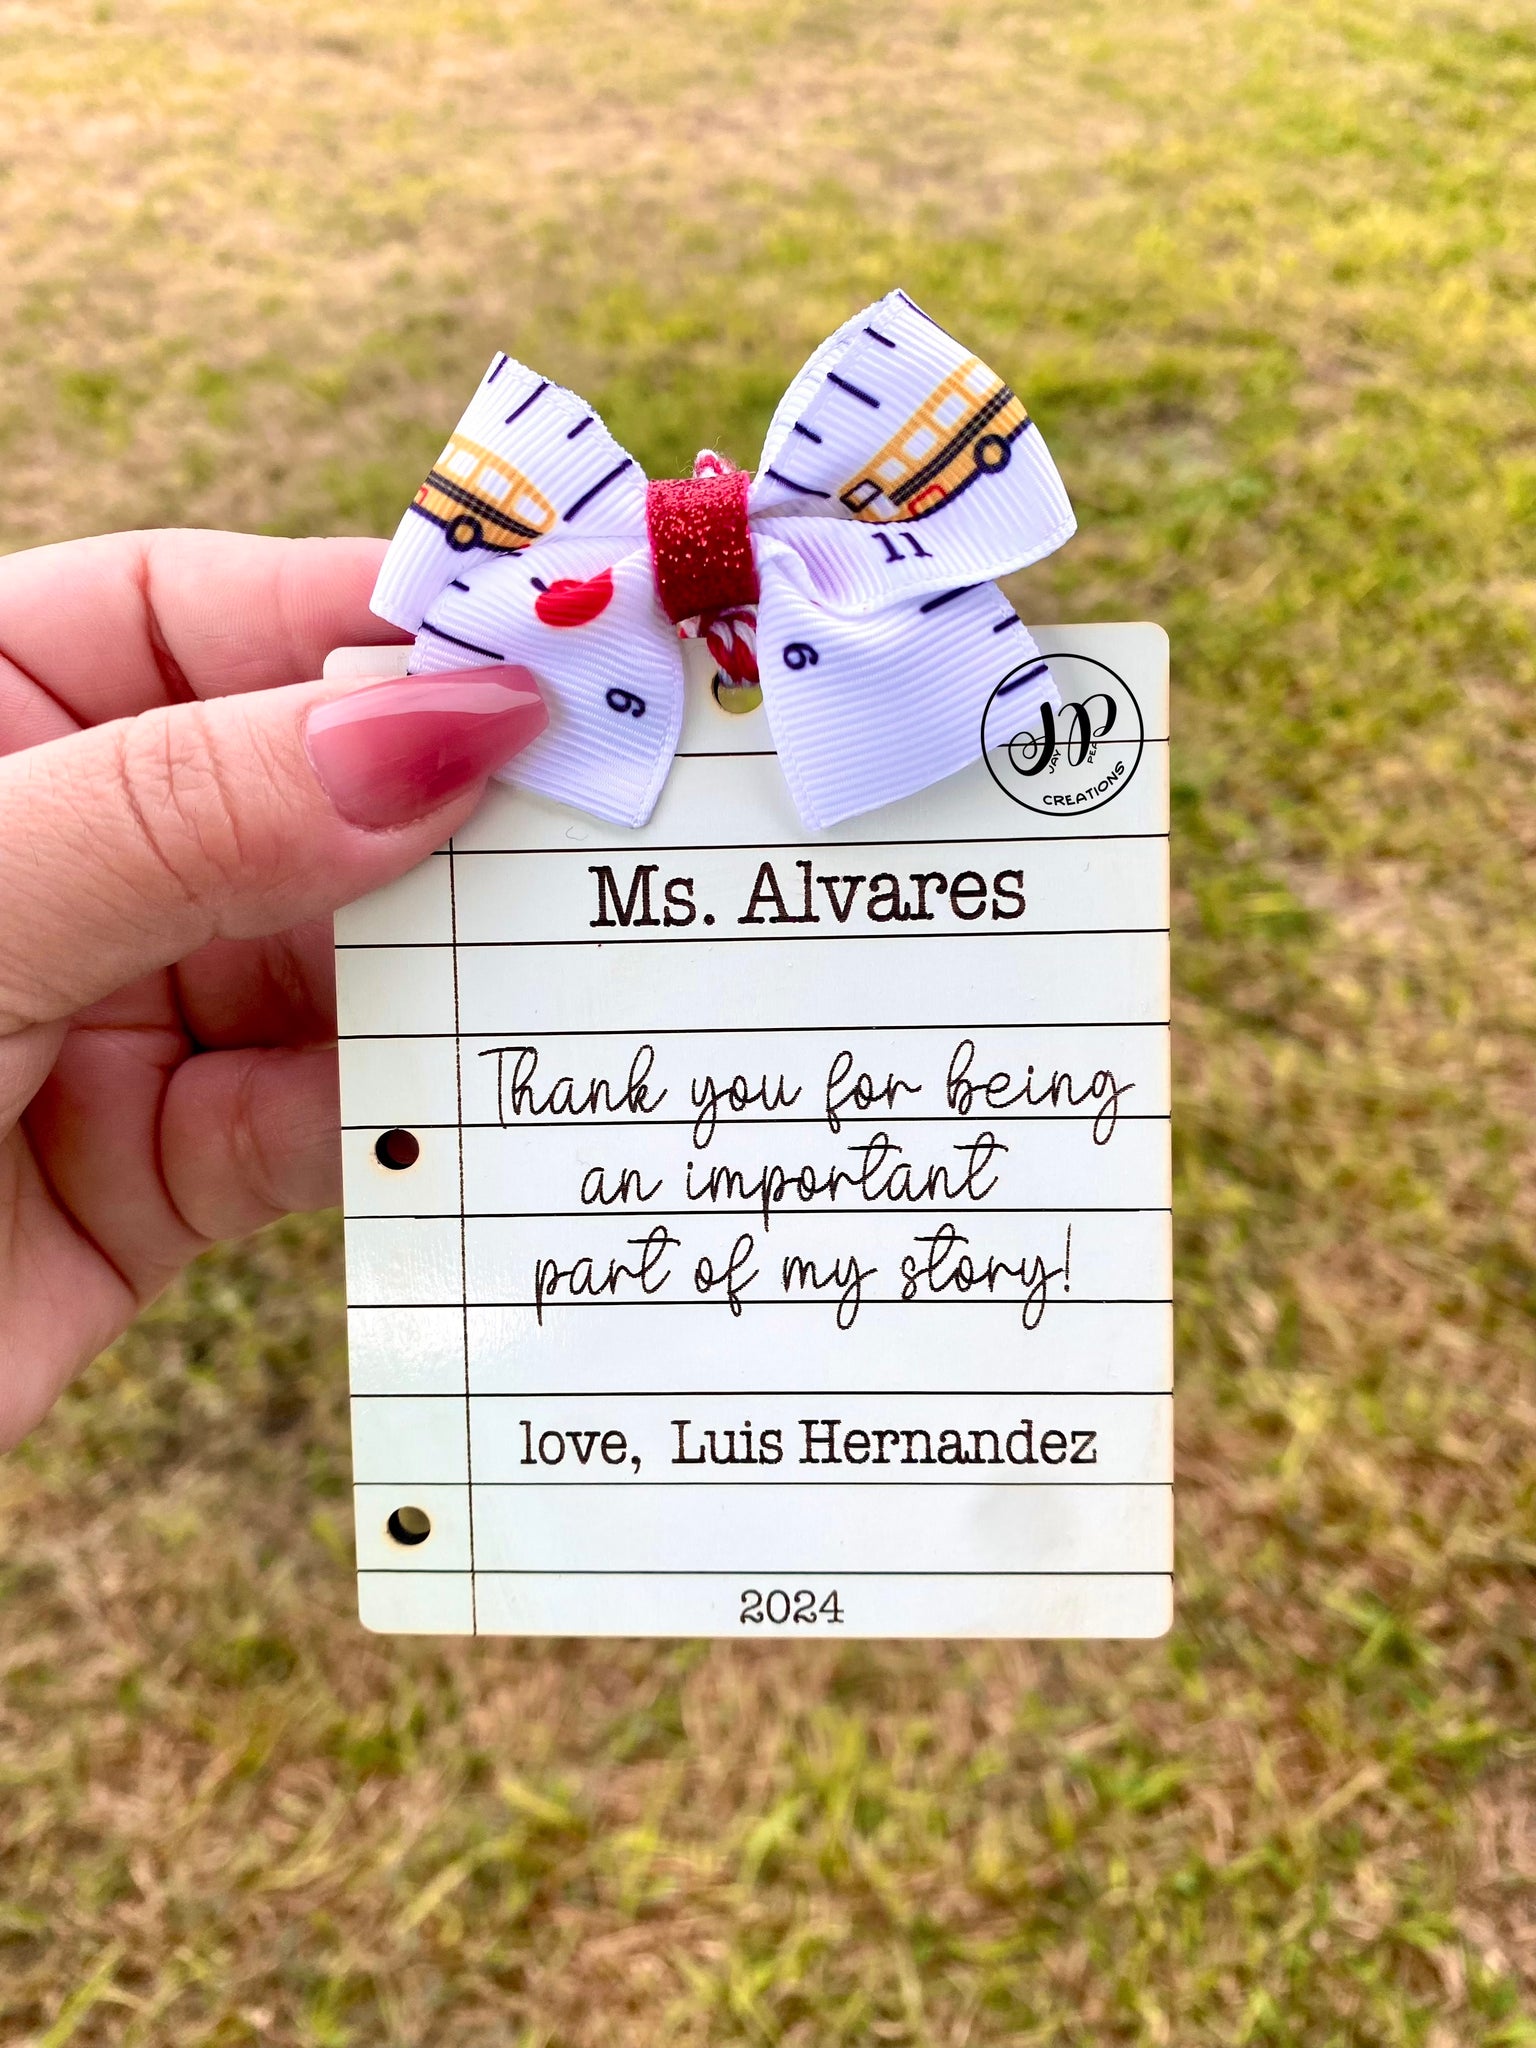 11
9
6
JP
JAY PEA
CREATIONS
Ms. Alvares
Thank you for being
an important
part of my story!
love, Luis Hernandez
2024